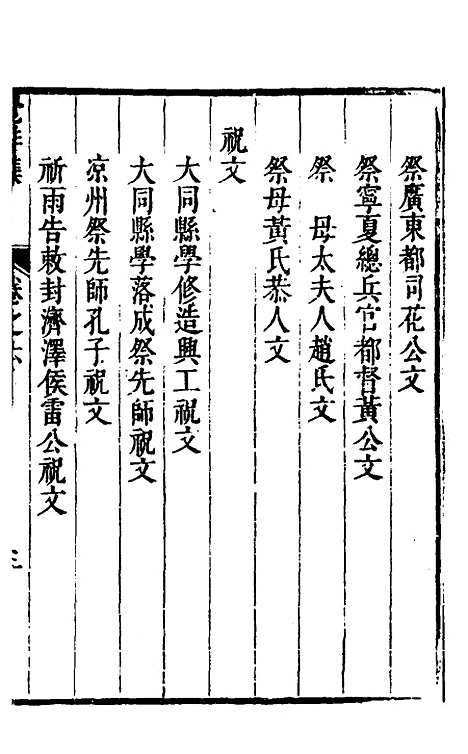 祭廣東都司花公文
祭寧夏總兵官都督黃公文
祭　母太夫人趙氏文
祭母黃氏恭人文
祝文
大同縣學修造興工祝文
大同縣學落成祭先師祝文
凉州祭先師孔子祝文
祈雨告敕封濟澤侯雷公祝文
卷之六
三